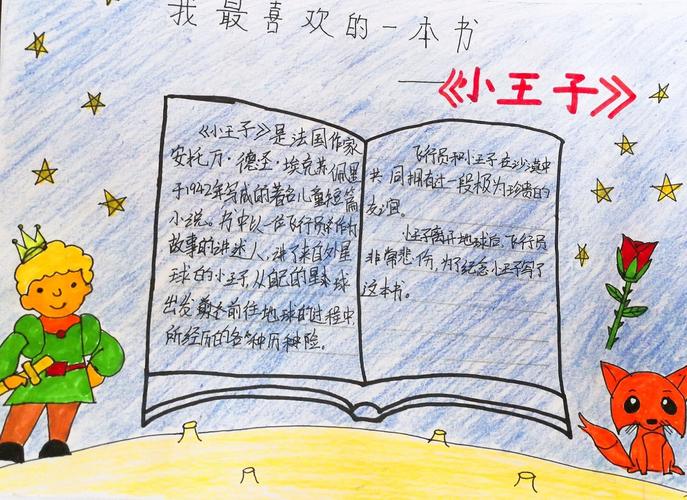 我最喜欢的一本书
——《小王子》
《小王子》是法国作家
安托万·德圣·埃克苏佩里
于1942年写成的著名儿童短篇
小说。书中以一位飞行员作为
故事的讲述人,讲了来自外星
球的小王子,从自己的星球
出发前往地球的过程中,
所经历的各种历险。
飞行员和小王子在沙漠中
共同拥有过一段极为珍贵的
友谊。
小王子离开地球后,飞行员
非常悲伤,为了纪念小王子写了
这本书。